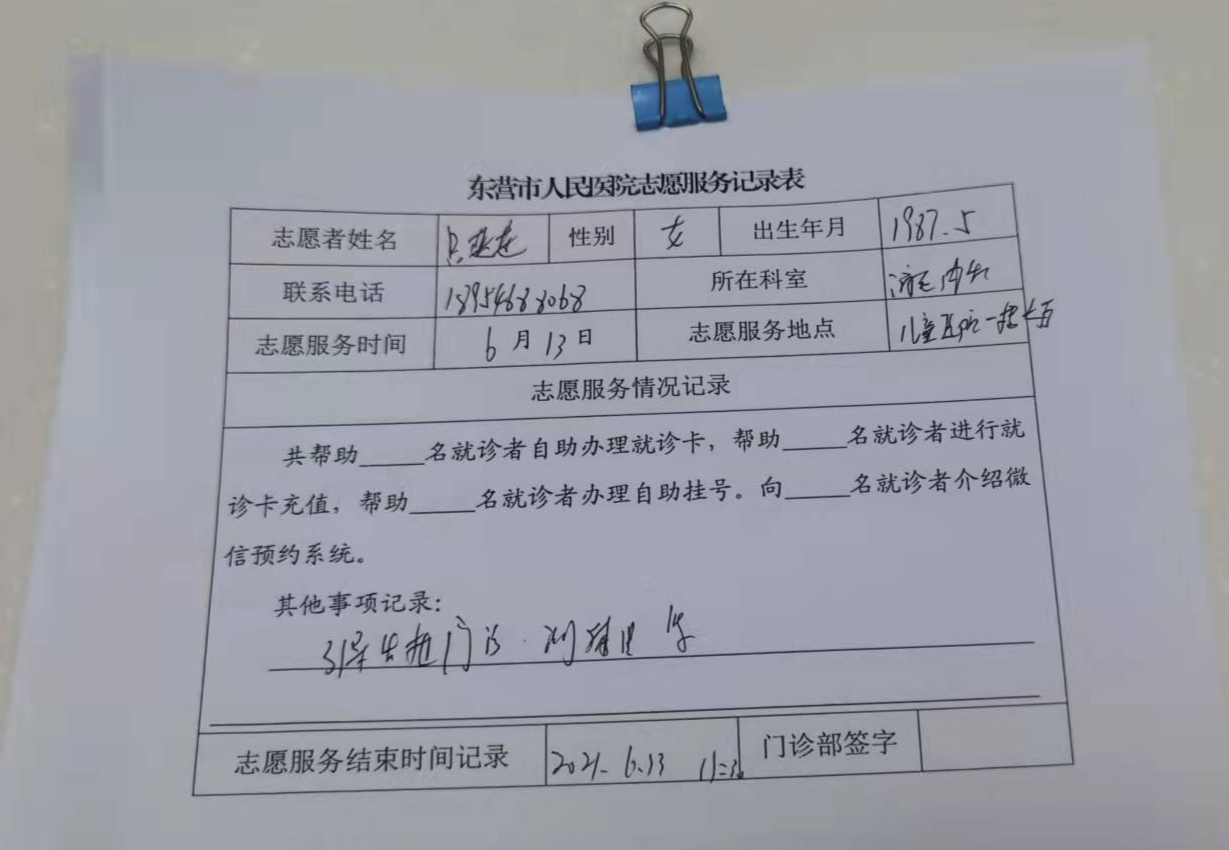 东营市人民医院志愿服务记录表
志愿者姓名 性别 女 出生年月 1987.5
联系电话 18954688068 所在科室
志愿服务时间 6月13日 志愿服务地点 儿童医院一楼大厅
志愿服务情况记录
共帮助_____名就诊者自助办理就诊卡，帮助_____名就诊者进行就
诊卡充值，帮助_____名就诊者办理自助挂号。向_____名就诊者介绍微
信预约系统。
其他事项记录：
门诊
志愿服务结束时间记录 2021.6.13 门诊部签字